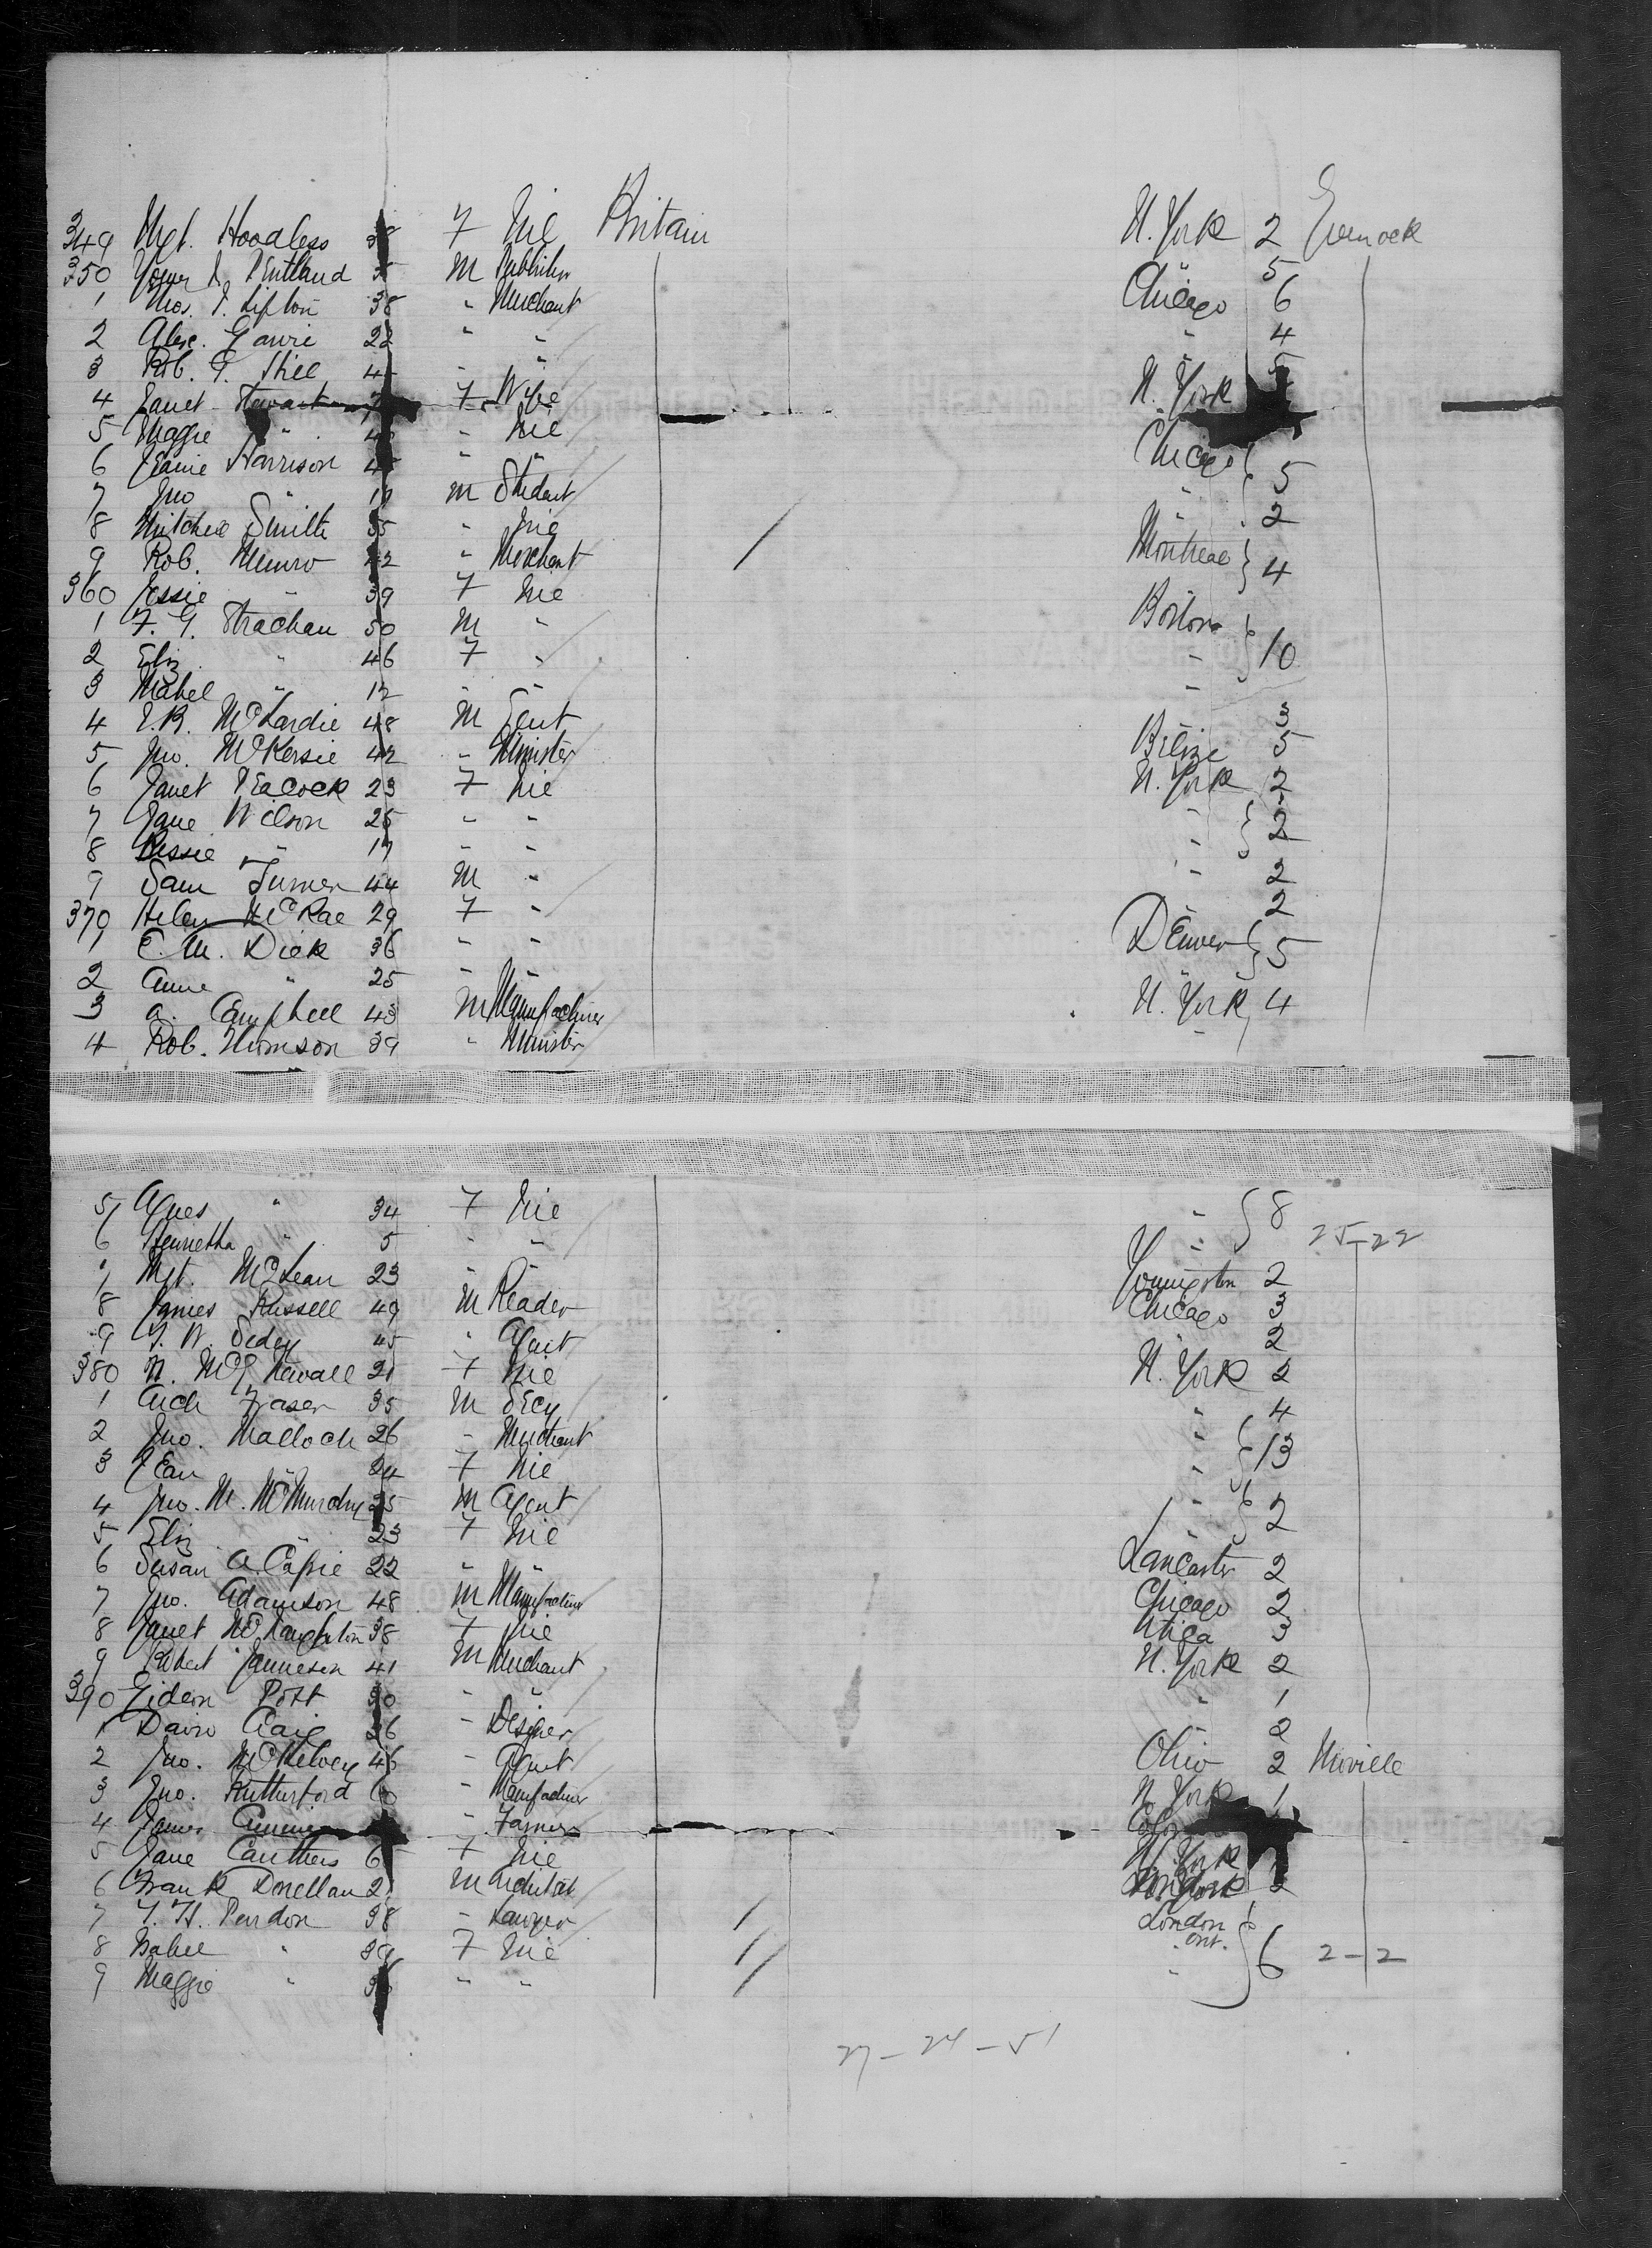 349 Mgt. Hoodless 38 F Nil Britain N. York 2 Greenock
350 Pentland M Publisher " 5
1 Thos. J. Lipton 38 " Merchant Chicago 6
2 Alex. Gowri 22 " " " 4
3 Rob. G. " " " 5
4 Janet Stewart F Wife N. York
5 Maggie " " Nil "
6 Jeanie Harrison 45 " " Chicago
7 Jno " 19 M Student " 5
8 Mitchell Smith 35 " Nil " 2
9 Rob. Munro 42 " Merchant / Montreal
360 Jessie " 39 F Nil " 4
1 F. G. Strachan 50 M " Boston
2 Eliz " 46 F " " 10
3 Mabel " 12 " " "
4 E. R. McHardie 48 M Gent " 3
5 Jno. McKersie 42 " Minister Belize 5
6 Janet Peacock 23 F Nil N. York 2
7 Jane Wilson 25 " " "
8 Bessie " 17 " " " 2
9 Sam Turner 44 M " " 2
370 Helen McRae 29 F " " 2
1 C. M. Dick 36 " " Denver
2 Anne " 25 " " " 5
3 A. Campbell 43 M Manufacturer N. York 4
4 Rob. Thomson 39 " Minister "
5 Agnes " 34 F Nil " 8
6 Henretha " 5 " " " 25-22
7 Mgt. McLean 23 " " Youngston 2
8 James Russell 49 M Reader Chicago 3
9 45 " Agent " 2
380 N. 21 F Nil N. York 2
1 Arch Fraser 35 M Secy " 4
2 Jno. Malloch 26 " Merchant "
3 Jean " 24 F Nil " 13
4 Jno. M. McMurchy 25 M Agent "
5 Eliz " 23 F Nil " 2
6 Susan A. 22 " " Lancaster 2
7 Jno. Adamson 48 M Manufacturer Chicago 2
8 Janet McNaughton 38 F Nil Utica 3
9 Robert Jamieson 41 M Merchant N. York 2
390 Gideon Pott 30 " " " 1
1 David Craig 26 " Designer " 2
2 Jno. McKelvey 46 " Agent Ohio 2 Moville
3 Jno. Rutherford 60 " Manufacturer N. York 1
4 James " Farmer
5 Jane Carithers F Nil N. York
6 Frank Donellan M Architect 2
7 T. H. Purdon 38 " Lawyer / London Ont.
8 Isabel " 39 F Nil / " 6 2-2
9 Maggie " 36 " " / "
27-24-51